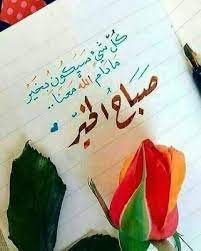 كُلُّ شَيْءٍ سَيَكُونُ بِخَيْر
مَادَامَ اللّٰهُ مَعَنَا..
صَبَاحُ الخَيْر